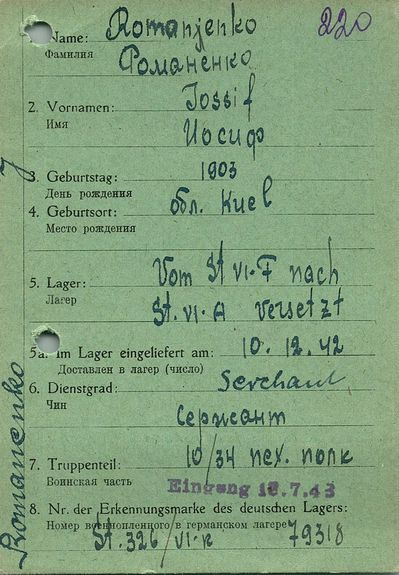 220
1. Name: Romanjenko
Фамилия Романенко
2. Vornamen: Jossif
Имя Иосиф
3. Geburtstag: 1903
День рождения
4. Geburtsort: обл. Киев
Место рождения
5. Lager: Vom St VI-F nach
Лагер St. VI-A versetzt
5a. Im Lager eingeliefert am: 10.12.42
Доставлен в лагер (число)
6. Dienstgrad: Serchant
Чин Сержант
7. Truppenteil: 10/34 пех. полк
Воинская часть
Eingang 18.7.43
8. Nr. der Erkennungsmarke des deutschen Lagers:
Номер военнопленного в германском лагере 79318
St. 326/VI-K
Romanenko